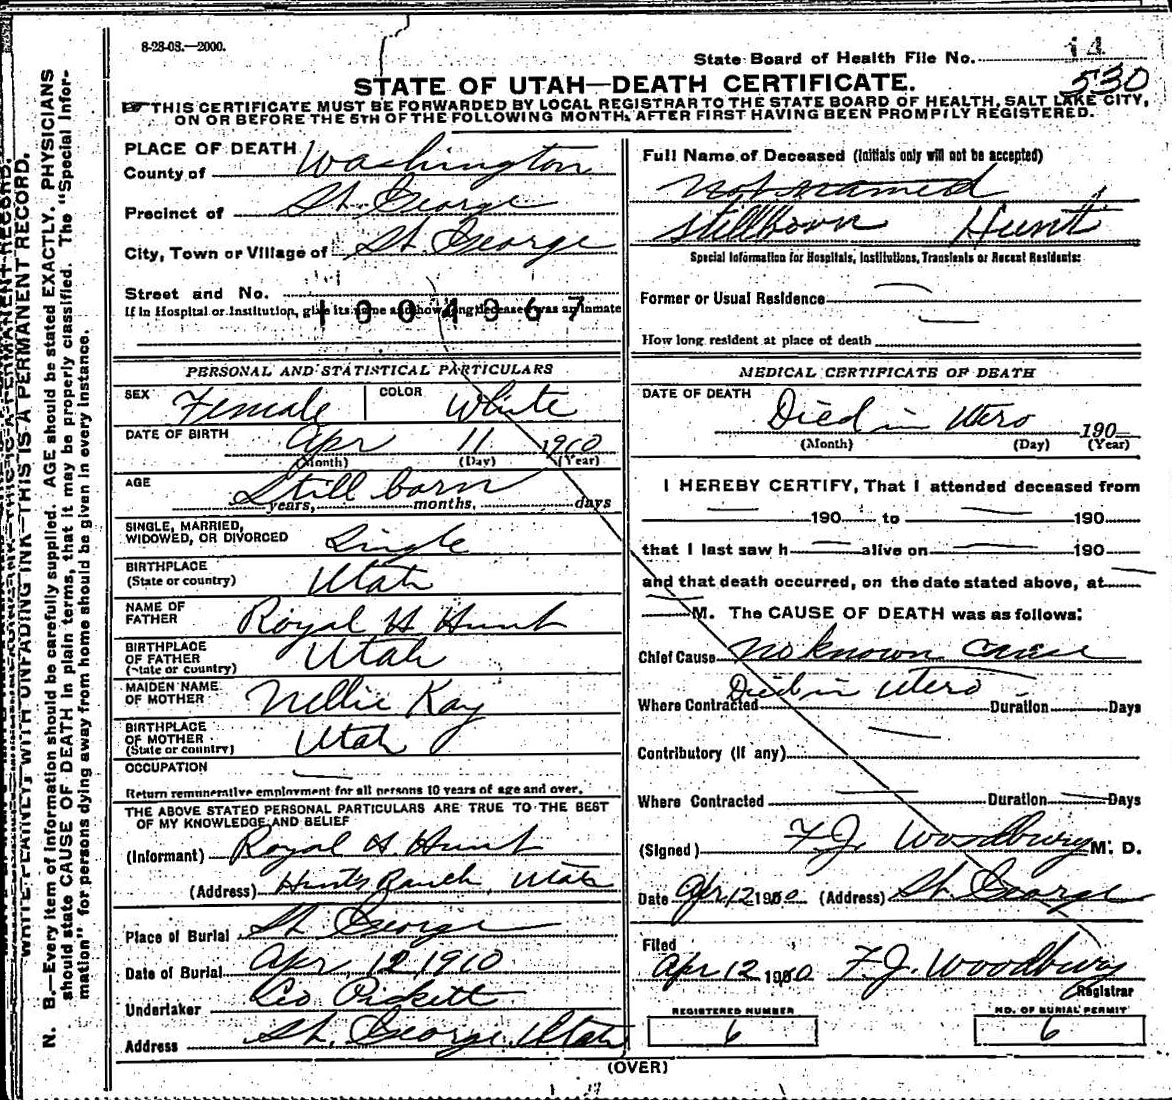 8-28-08.—2000.
State Board of Health File No. 14
530
STATE OF UTAH—DEATH CERTIFICATE.
THIS CERTIFICATE MUST BE FORWARDED BY LOCAL REGISTRAR TO THE STATE BOARD OF HEALTH, SALT LAKE CITY,
ON OR BEFORE THE 5TH OF THE FOLLOWING MONTH, AFTER FIRST HAVING BEEN PROMPTLY REGISTERED.
PLACE OF DEATH
County of Washington
Precinct of St. George
City, Town or Village of St. George
Street and No.
If in Hospital or Institution, give its name and how long deceased was an inmate
1004967
PERSONAL AND STATISTICAL PARTICULARS
SEX Female COLOR White
DATE OF BIRTH Apr 11 1910
(Month) (Day) (Year)
AGE Still born
years, months, days
SINGLE, MARRIED,
WIDOWED, OR DIVORCED Single
BIRTHPLACE
(State or country) Utah
NAME OF
FATHER Royal H Hunt
BIRTHPLACE
OF FATHER
(State or country) Utah
MAIDEN NAME
OF MOTHER Nellie Kay
BIRTHPLACE
OF MOTHER
(State or country) Utah
OCCUPATION
Return remunerative employment for all persons 10 years of age and over.
THE ABOVE STATED PERSONAL PARTICULARS ARE TRUE TO THE BEST
OF MY KNOWLEDGE AND BELIEF
(Informant) Royal H. Hunt
(Address) Hunts Ranch, Utah
Place of Burial St. George
Date of Burial Apr, 12, 1910
Undertaker Geo Pickett
Address St. George, Utah
Full Name of Deceased (Initials only will not be accepted)
Not named
Stillborn Hunt
Special Information for Hospitals, Institutions, Transients or Recent Residents:
Former or Usual Residence
How long resident at place of death
MEDICAL CERTIFICATE OF DEATH
DATE OF DEATH
Died in Utero 190
(Month) (Day) (Year)
I HEREBY CERTIFY, That I attended deceased from
190 to 190
that I last saw h alive on 190
and that death occurred, on the date stated above, at
M. The CAUSE OF DEATH was as follows:
Chief Cause No known cause
Died in Utero
Where Contracted Duration Days
Contributory (if any)
Where Contracted Duration Days
(Signed) F.J. Woodbury M. D.
Date Apr 12 1910 (Address) St. George
Filed
Apr 12 1910 F.J. Woodbury
Registrar
REGISTERED NUMBER
6
NO. OF BURIAL PERMIT
6
(OVER)
WRITE PLAINLY, WITH UNFADING INK—THIS IS A PERMANENT RECORD.
N. B.—Every item of information should be carefully supplied. AGE should be stated EXACTLY. PHYSICIANS
should state CAUSE OF DEATH in plain terms, that it may be properly classified. The "Special Infor-
mation" for persons dying away from home should be given in every instance.